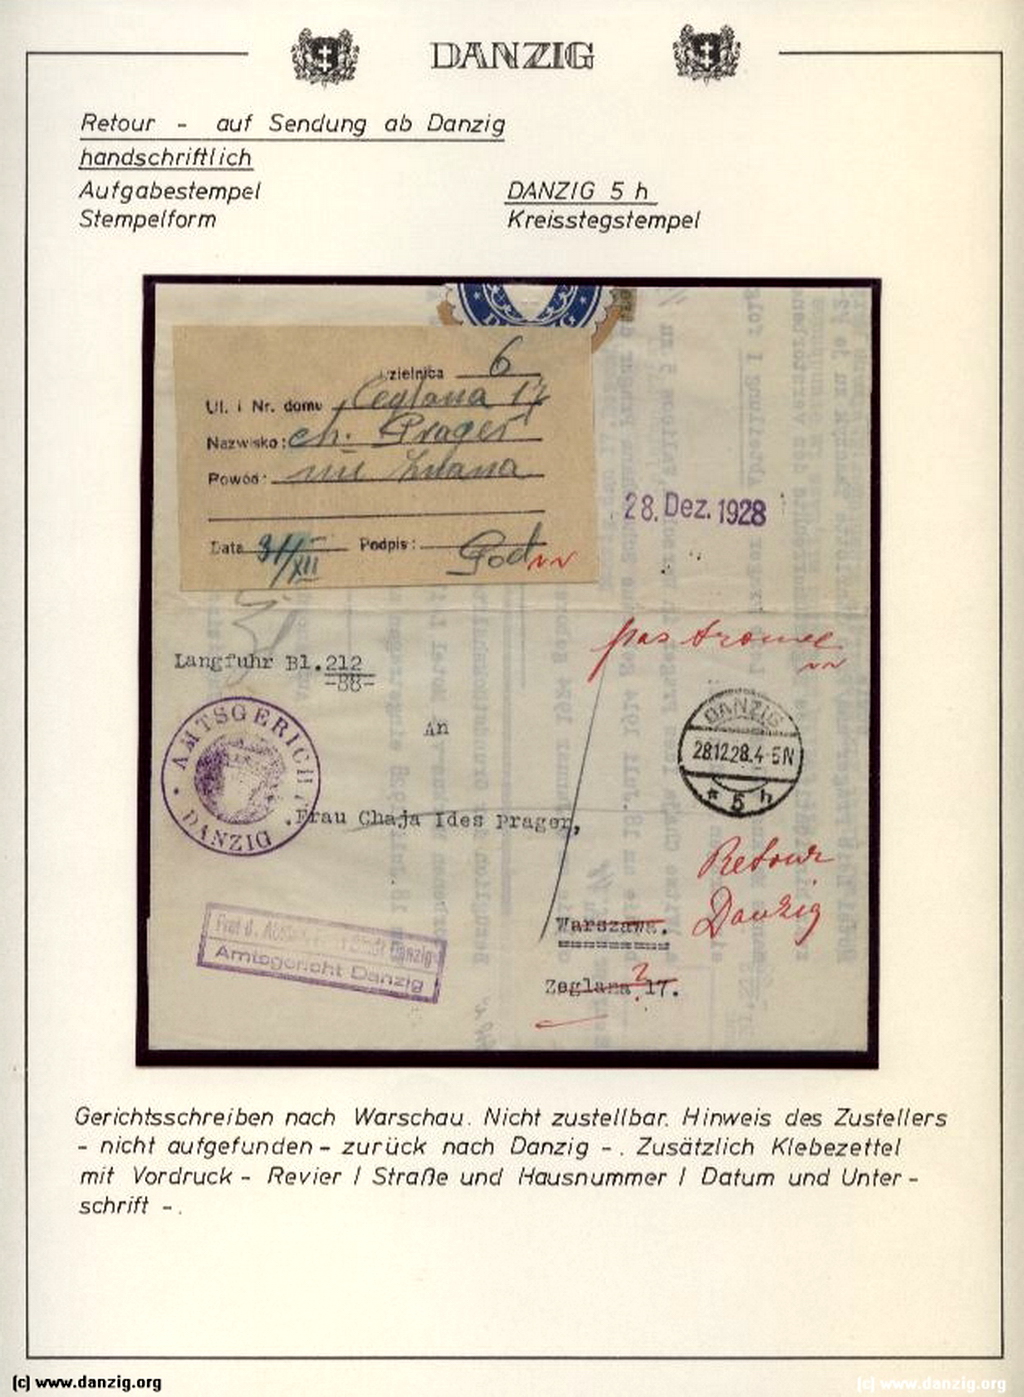 DANZIG
Retour - auf Sendung ab Danzig
handschriftlich
Aufgabestempel DANZIG 5 h
Stempelform Kreisstegstempel
DANZIG
zielnica 6
Ul. i Nr. domu Ceglana 17
Nazwisko: Ch. Prager
Powód: nie znana
Data 31/XII Podpis:
28. Dez. 1928
Langfuhr Bl. 212
-88-
pas trouvé
AMTSGERICHT DANZIG
An
DANZIG
28.12.28.4-5N
* 5 h
Frau Chaja Ides Prager,
Retour
Danzig
Warszawa.
Zeglana 17.
?
Frei d. Ablös. Stadt Danzig
Amtsgericht Danzig
Gerichtsschreiben nach Warschau. Nicht zustellbar. Hinweis des Zustellers
- nicht aufgefunden - zurück nach Danzig -. Zusätzlich Klebezettel
mit Vordruck - Revier / Straße und Hausnummer / Datum und Unter-
schrift -.
(c) www.danzig.org
(c) www.danzig.org